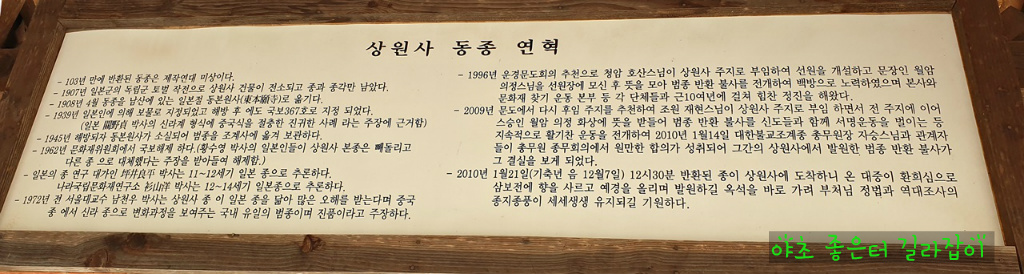 상원사 동종 연혁
- 103년 만에 반환된 동종은 제작연대 미상이다.
- 1907년 일본군의 독립군 토벌 작전으로 상원사 건물이 전소되고 종과 종각만 남았다.
- 1908년 4월 동종을 남산에 있는 일본절 동본원사(東本願寺)로 옮기다.
- 1939년 일본인에 의해 보물로 지정되었고 해방 후 에도 국보367호로 지정 되었다.
(일본 關野貞 박사의 신라계 형식에 중국식을 결층한 진귀한 사례 라는 주장에 근거함)
- 1945년 해방되자 동본원사가 소실되어 범종을 조계사에 옮겨 보관하다.
- 1962년 문화재위원회에서 국보해제 하다.(황수영 박사의 일본인들이 상원사 본종은 빼돌리고
다른 종 으로 대체했다는 주장을 받아들여 해제함.)
- 일본의 종 연구 대가인 坪井良平 박사는 11~12세기 일본 종으로 추론하다.
나라국립문화재연구소 杉山洋 박사는 12~14세기 일본종으로 추론하다.
- 1972년 전 서울대교수 남천우 박사는 상원사 종 이 일본 종을 닮아 많은 오해를 받는다며 중국
종 에서 신라 종으로 변화과정을 보여주는 국내 유일의 범종이며 진품이라고 주장하다.
- 1996년 운경문도회의 추천으로 청암 호산스님이 상원사 주지로 부임하여 선원을 개설하고 문장인 월암
의정스님을 선원장에 모신 후 뜻을 모아 범종 반환 불사를 전개하여 백방으로 노력하였으며 본사와
문화재 찾기 운동 본부 등 각 단체들과 근10여년에 걸쳐 힘찬 정진을 해왔다.
- 2009년 문도에서 다시 후임 주지를 추천하여 조원 재현스님이 상원사 주지로 부임 하면서 전 주지에 이어
스승인 월암 의정 화상에 뜻을 받들어 범종 반환 불사를 신도들과 함께 서명운동을 벌이는 등
지속적으로 활기찬 운동을 전개하여 2010년 1월14일 대한불교조계종 총무원장 자승스님과 관계자
들이 총무원 종무회의에서 원만한 합의가 성취되어 그간의 상원사에서 발원한 범종 반환 불사가
그 결실을 보게 되었다.
- 2010년 1월21일(기축년 음 12월7일) 12시30분 반환된 종이 상원사에 도착하니 온 대중이 환희심으로
삼보전에 향을 사르고 예경을 올리며 발원하길 옥석을 바로 가려 부처님 정법과 역대조사의
종지종풍이 세세생생 유지되길 기원하다.
야초 좋은터 길라잡이